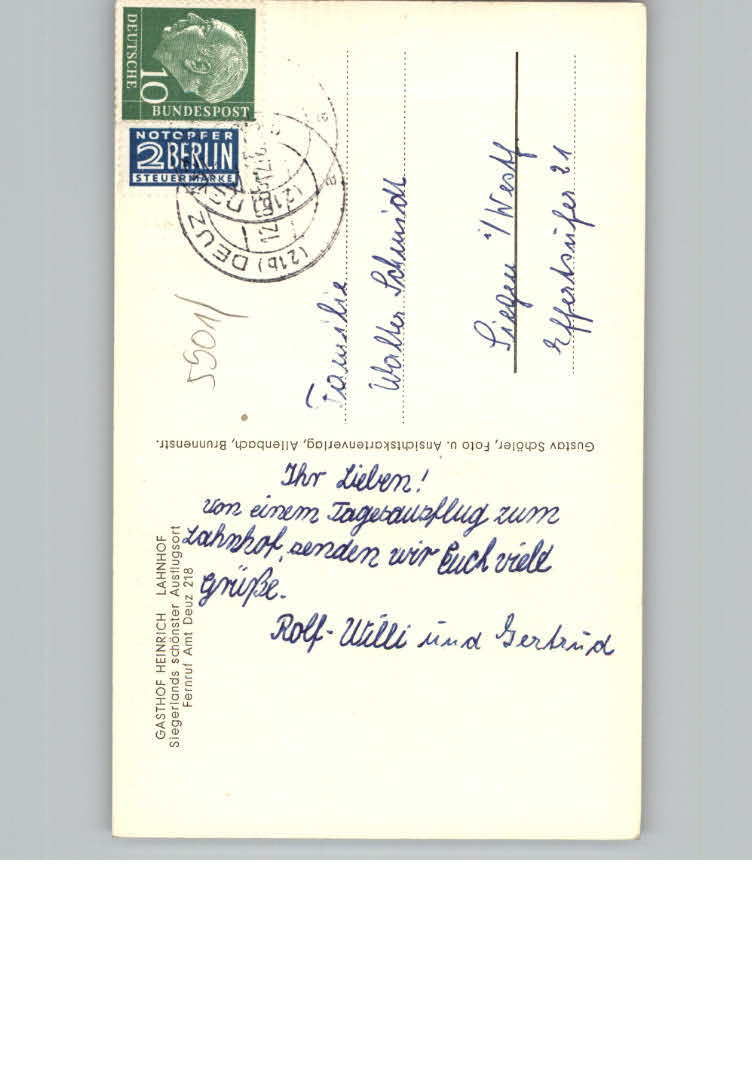 DEUTSCHE
10
BUNDESPOST
NOTOPFER
2 BERLIN
STEUERMARKE
(21b) DEUZ
5901/
Familie
Walter Schmidt
Siegen i/Westf.
Effertsufer 21
Gustav Schöler, Foto u. Ansichtskartenverlag, Allenbach, Brunnenstr.
GASTHOF HEINRICH LAHNHOF
Siegerlands schönster Ausflugsort
Fernruf Amt Deuz 218
Ihr Lieben!
von einem Tagesausflug zum
Lahnhof, senden wir Euch viele
Grüße.
Rolf-Willi und Gertrud